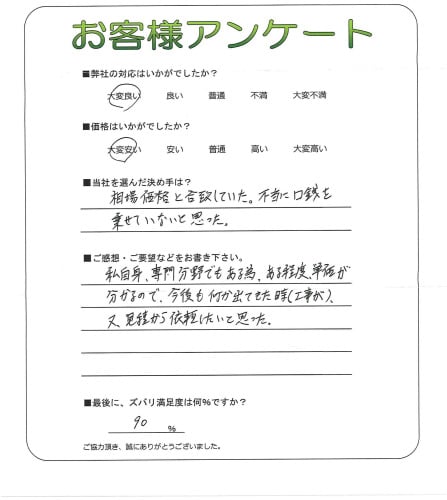 お客様アンケート
■弊社の対応はいかがでしたか?
大変良い 良い 普通 不満 大変不満
■価格はいかがでしたか?
大変安い 安い 普通 高い 大変高い
■当社を選んだ決め手は?
相場価格と合致していた。不当に口銭を
乗せていないと思った。
■ご感想・ご要望などをお書き下さい。
私自身、専門分野でもある為、ある程度、単価が
分かるので、今後も何か出てきた時(工事が)、
又、見積から依頼したいと思った。
■最後に、ズバリ満足度は何%ですか?
90 %
ご協力頂き、誠にありがとうございました。